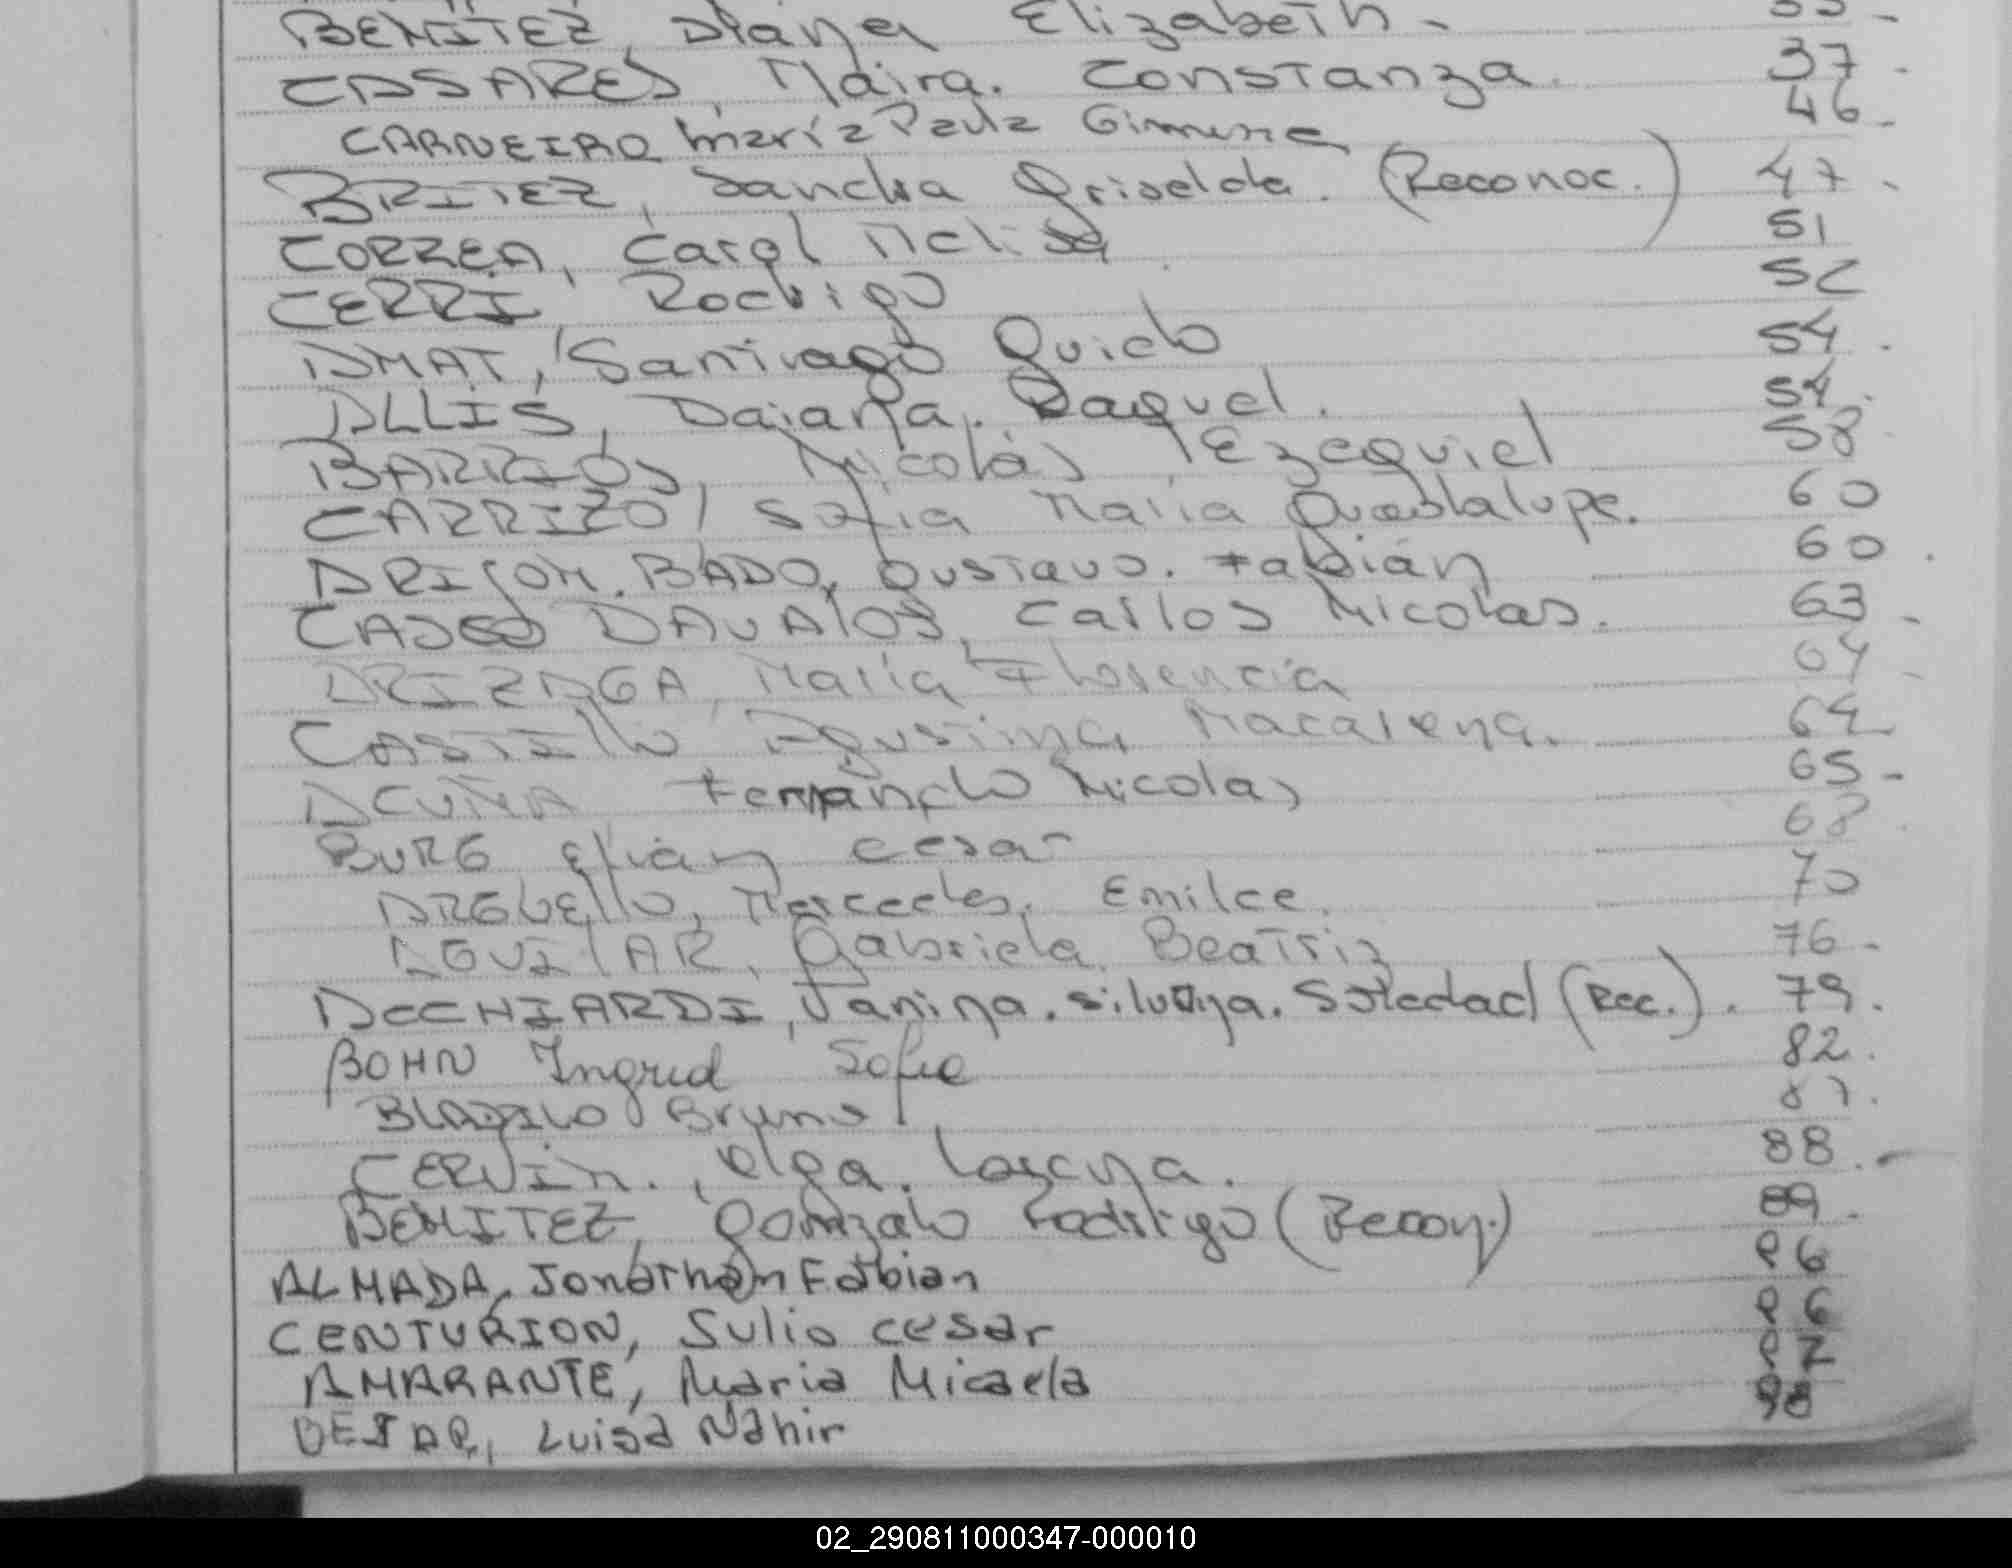 BENÍTEZ, Diana Elizabeth -
CASARES, Maira. Constanza. 37 -
CARNEIRO María Paula Gimena 46 -
BRITEZ, Sandra Griselda. (Reconoc.) 47 -
CORREA, Carol Melisa 51
CERRI Rodrigo 52
AMAT, Santiago Guido 54 .
ALLIS, Daiana. Raquel. 54 .
BARRIOS, Nicolás Ezequiel 58
CARRIZO, Sofia María Guadalupe. 60
ARISON. BADO, Gustavo. Fabián 60 .
DAVALOS, Carlos Nicolas. 63 -
ARIZAGA, María Florencia 64 -
CASTILLO Agustina Macarena. 64
ACUÑA Fernando Nicolas 65 -
BURG efián cesar 68
ARGUELLO, Mercedes. Emilce. 70
AGUILAR, Gabriela. Beatriz 76 -
ACCHIARDI, Janina. Silvana. Soledad (Rec.). 79 .
BOHN Ingrid Sofie 82 .
Bruno 87 .
CERVIN., Olga. Lorena. 88 . -
BENITEZ, Gonzalo Rodrigo (Recon.) 89 .
ALMADA, Jonathan Fabian 96
CENTURION, Julio cesar 96
AMARANTE, Maria Micaela 97
Luisa Nahir 98
02_290811000347-000010